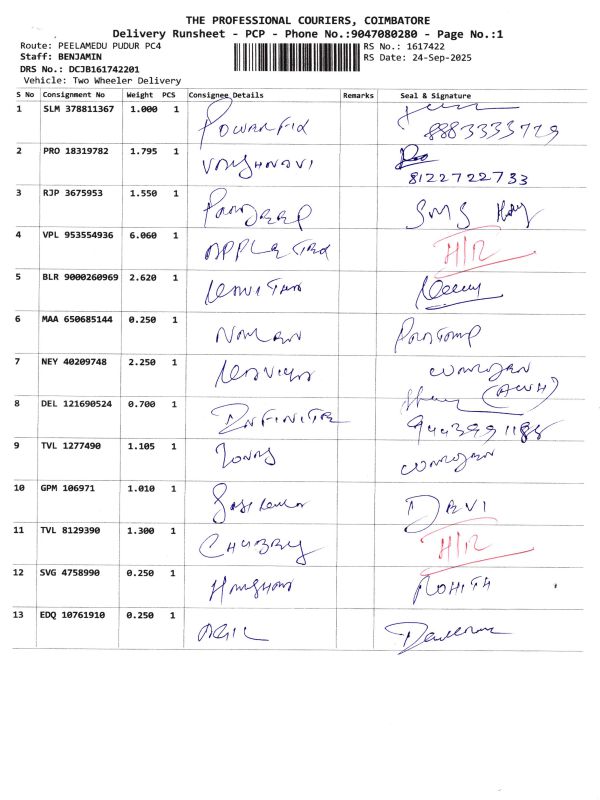 THE PROFESSIONAL COURIERS, COIMBATORE
Delivery Runsheet - PCP - Phone No.:9047080280 - Page No.:1
Route: PEELAMEDU PUDUR PC4
RS No.: 1617422
Staff: BENJAMIN
RS Date: 24-Sep-2025
DRS No.: DCJB161742201
Vehicle: Two Wheeler Delivery
S No Consignment No Weight PCS Consignee Details Remarks Seal & Signature
1 SLM 378811367 1.000 1 POWARFIX
8883333729
2 PRO 18319782 1.795 1 VAISHNAVI
8122722733
3 RJP 3675953 1.550 1 PANDEEP SMS
4 VPL 953554936 6.060 1 APPLE H/R
5 BLR 9000260969 2.620 1
6 MAA 650685144 0.250 1
7 NEY 40209748 2.250 1
8 DEL 121690524 0.700 1 INFINITE
9443991188
9 TVL 1277490 1.105 1
10 GPM 106971 1.010 1 Sasikumar DEVI
11 TVL 8129390 1.300 1 H/R
12 SVG 4758990 0.250 1 ROHITH
13 EDQ 10761910 0.250 1 AGIL